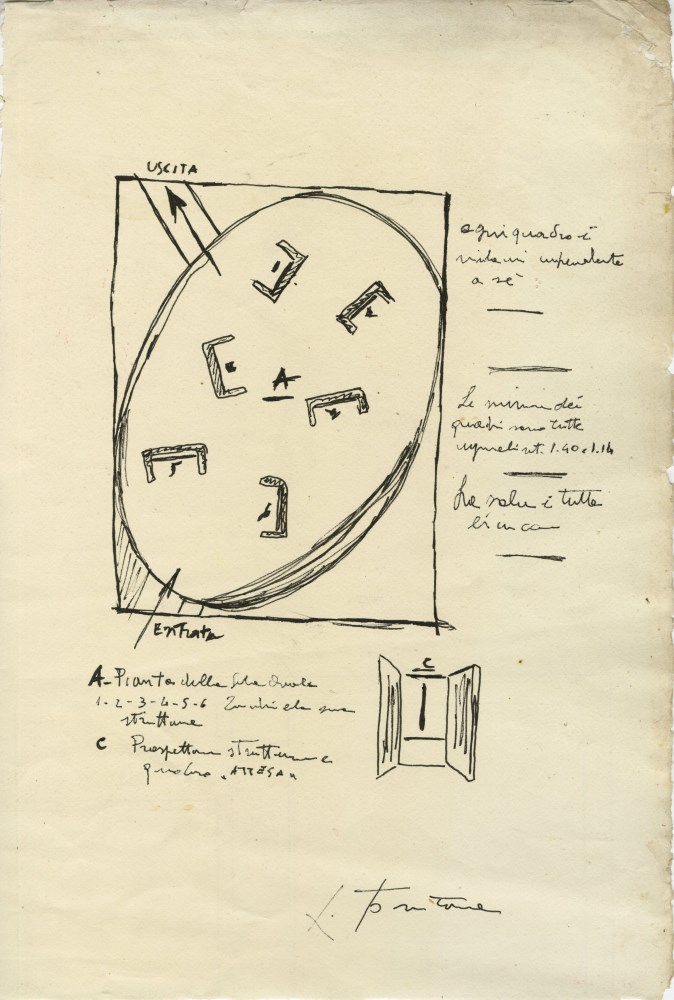 USCITA
ogni quadro è
a sé
1
2
A
5
6
Le misure dei
quadri sono tutte
uguali mt. 1.40 x 1.14
La sala è tutta
bianca
Entrata
C
A - Pianta della Sala Ovale
1-2-3-4-5-6 e la sua
struttura
C Prospettiva struttura e
quadro "ATTESA"
L. Fontana